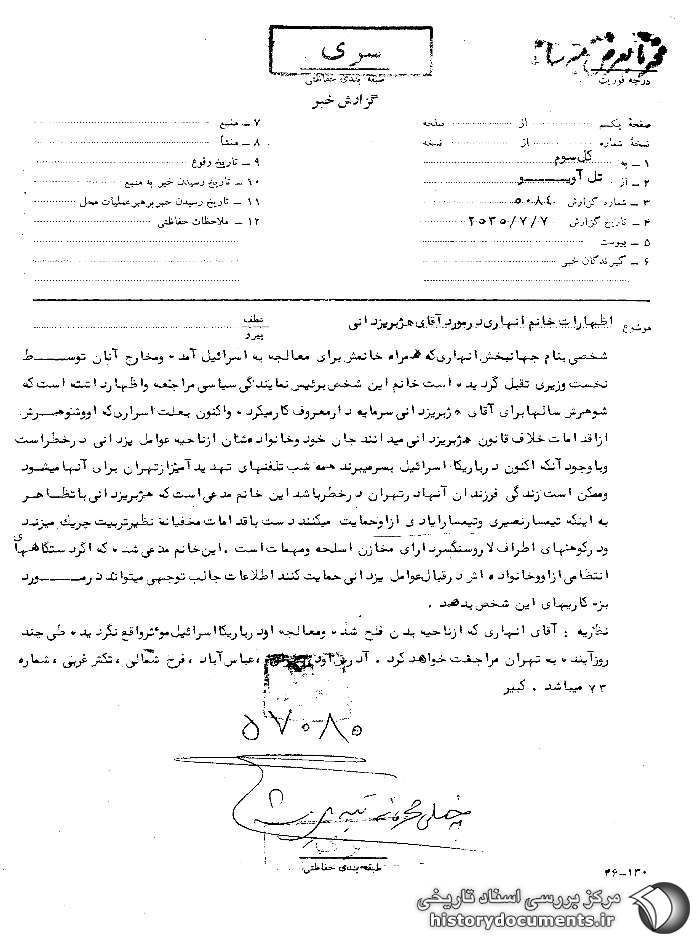 سری
طبقه بندی حفاظتی
درجه فوریت
گزارش خبر
صفحهٔ یکم از صفحه
نسخهٔ شماره از نسخه
۱ ـ به کل سوم
۲ ـ از تل آویو
۳ ـ شماره گزارش ۵۰۸۴۰
۴ ـ تاریخ گزارش ۲۵۳۵/۷/۷
۵ ـ پیوست
۶ ـ گیرندگان خبر
۷ ـ منبع
۸ ـ منشأ
۹ ـ تاریخ وقوع
۱۰ ـ تاریخ رسیدن خبر به منبع
۱۱ ـ تاریخ رسیدن خبر برهبر عملیات محل
۱۲ ـ ملاحظات حفاظتی
موضوع اظهارات خانم انهاری در مورد آقای هژبر یزدانی
عطف
پیرو
شخصی بنام جهانبخش انهاری که همراه خانمش برای معالجه به اسرائیل آمده ومخارج آنان توسط
نخست وزیری تقبل گردیده است خانم این شخص برئیس نمایندگی سیاسی مراجعه واظهار داشته است که
شوهرش سالها برای آقای هژبر یزدانی سرمایه دار معروف کار میکرده واکنون بعلت اسراری که او وشوهرش
از اقدامات خلاف قانون هژبر یزدانی میدانند جان خود وخانواده شان از ناحیه عوامل یزدانی در خطر است
وباوجود آنکه اکنون در باریکا اسرائیل بسر میبرند همه شب تلفنهای تهدید آمیز از تهران برای آنها میشود
وممکن است زندگی فرزندان آنها در تهران در خطر باشد این خانم مدعی است که هژبر یزدانی با تظاهر
به اینکه تیمسار نصیری وتیمسار ایادی از او حمایت میکنند دست باقدامات مخفیانه نظیر تربیت چریک میزند
ودر کوههای اطراف لار وسنگسر دارای مخازن اسلحه ومهمات است . این خانم مدعی شده که اگر دستگاههای
انتظامی از او وخانواده اش در قبال عوامل یزدانی حمایت کنند اطلاعات جالب توجهی میتواند در مورد
بزه کاریهای این شخص بدهد .
نظریه : آقای انهاری که از ناحیه بدن فلج شده ومعالجه او در باریکا اسرائیل موثر واقع نگردیده طی چند
روز آینده به تهران مراجعت خواهد کرد . آدرس او در ، عباس آباد ، فرح شمالی ، شکر غربی ، شماره
۷۳ میباشد . کبیر
۵۷۰۸۰
طبقه بندی حفاظتی
۴۶-۱۳۰
مرکز بررسی اسناد تاریخی
historydocuments.ir